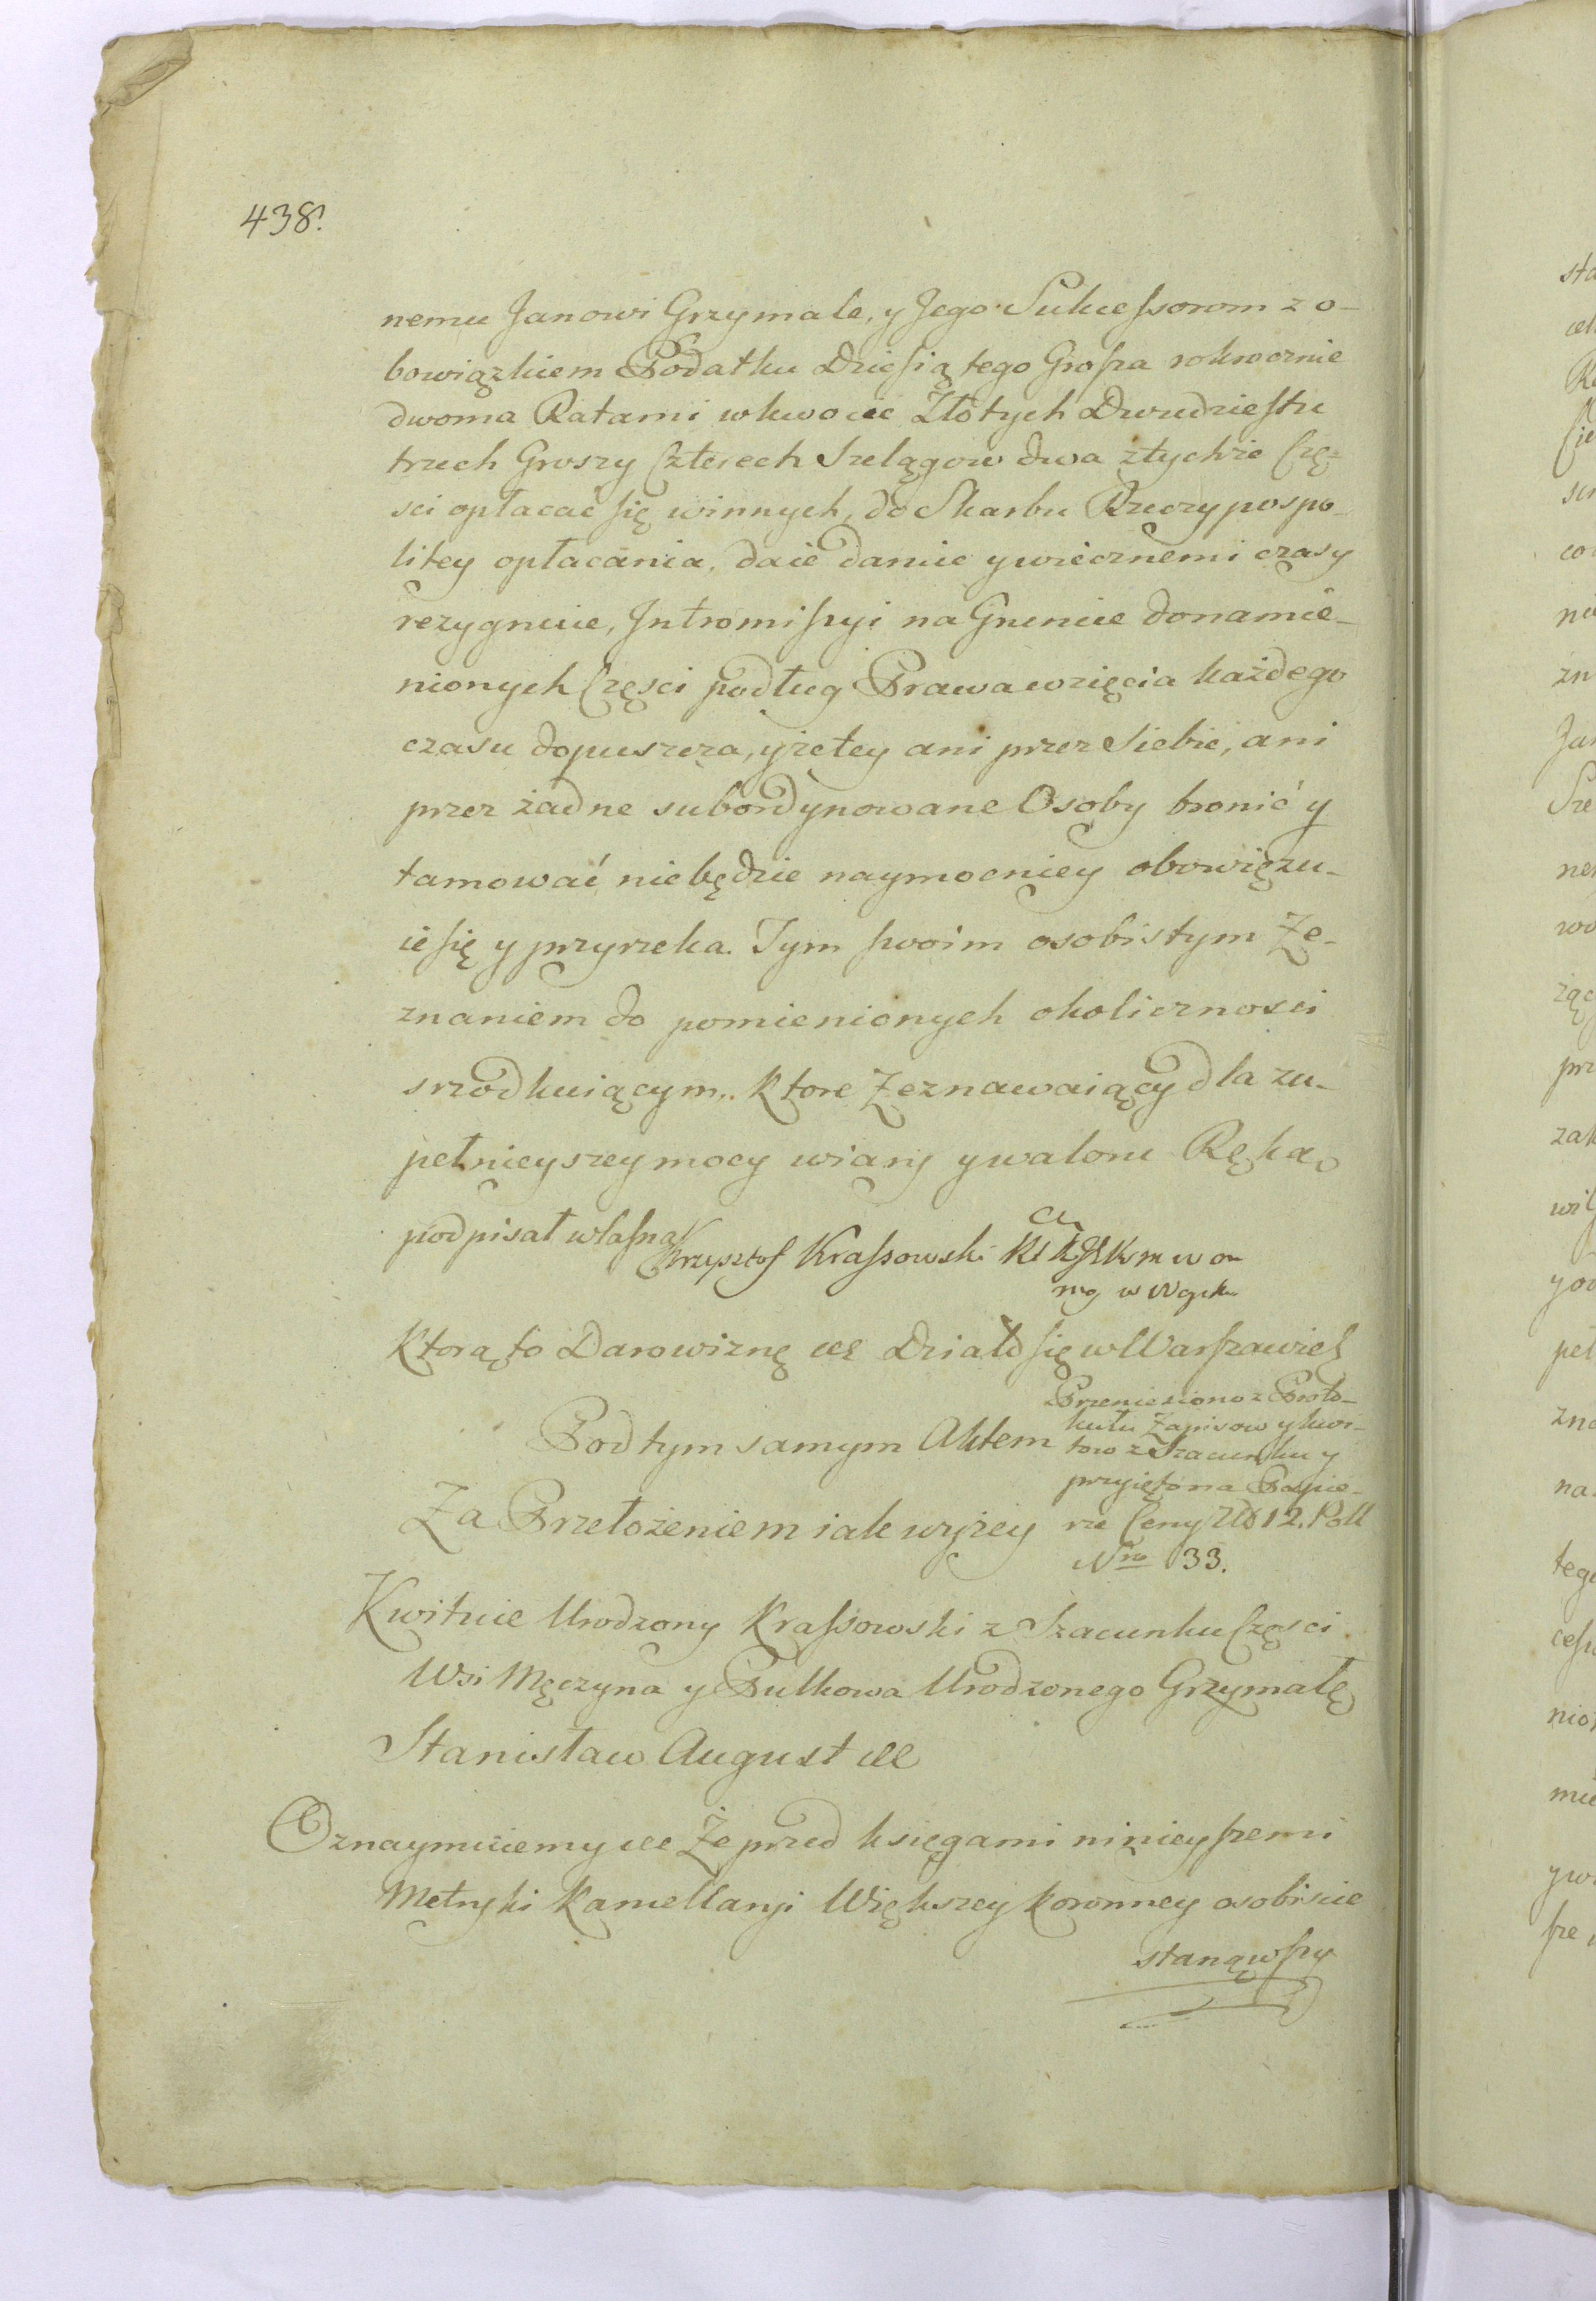 438.
nemu Janowi Grzymale, y Jego Sukcessorom z o-
bowiązkiem Podatku Dziesiątego Grosza rokrocznie
dwoma Ratami w kwocie Złotych Dwudziestu
trzech Groszy Czterech Szelągow dwa z tychże Czę-
sci opłacać się winnych, do Skarbu Rzeczypospo-
litey opłacania, daie daruie y wiecznemi czasy
rezygnuie, Intromissyi na Gruncie do namie-
nionych Częsci podług Prawa wzięcia każdego
czasu dopuszcza, y że tey ani przez siebie, ani
przez żadne subordynowane Osoby bronić y
tamować niebędzie naymocniey obowięzu-
ie się y przyrzeka. Tym swoim osobistym Ze-
znaniem do pomienionych okolicznosci
srzodkuiącym.. Ktore Zeznawaiący dla zu-
pełnieyszey mocy wiary y waloru Ręką
podpisał własną Krzysztof Krassowski
Ktorą to Darowiznę etc Działo się w Warszawie
Pod tym samym Aktem
Przeniesiono z Proto-
kułu Zapisow y kwi-
tow z Szacunku y
przyięto na Papie-
rze Ceny Zło 12. Poll
Nro 33.
Za Przełożeniem iak wyżey
Kwituie Urodzony Krassowski z Szacunku Częsci
Wsi Męczyna y Pulkowa Urodzonego Grzymałę
Stanisław August etc
Oznaymuiemy etc Że przed księgami ninieyszemi
Metryki Kancellaryi Większey koronney osobiscie
stanąwszy